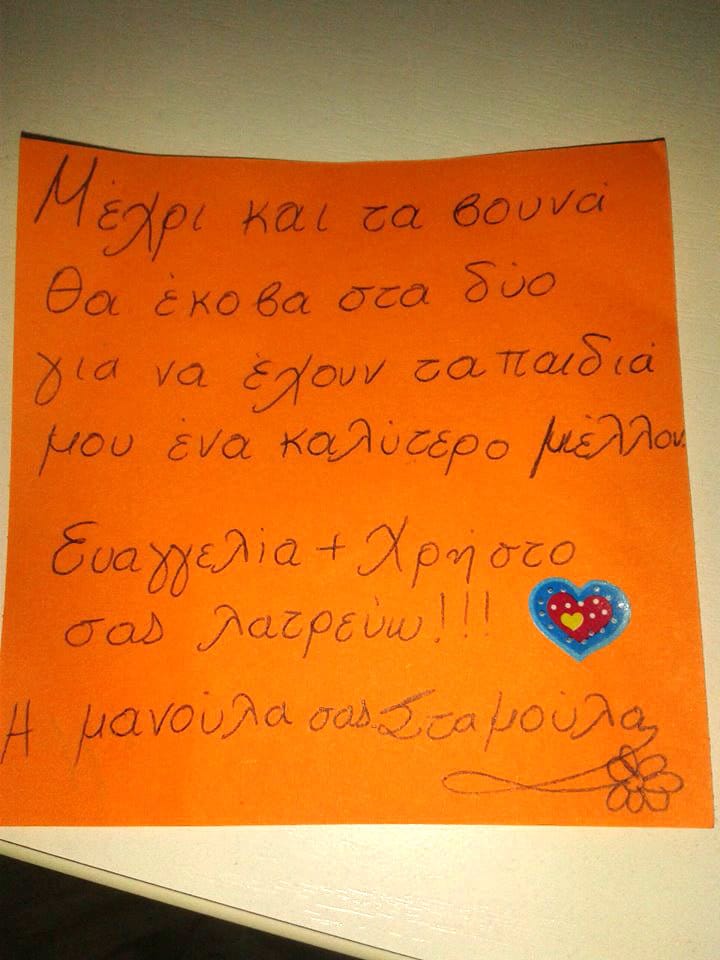 Μέχρι και τα βουνά
θα έκοβα στα δύο
για να έχουν τα παιδιά
μου ένα καλύτερο μέλλον.
Ευαγγελία + Χρήστο
σας λατρεύω!!!
Η μανούλα σας Σταμούλα